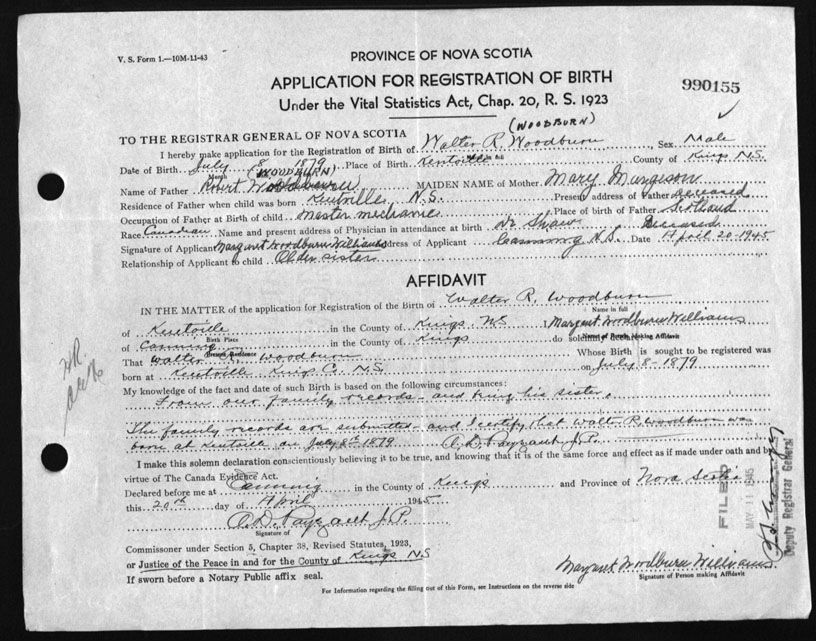 V. S. Form 1.—10M-11-43
PROVINCE OF NOVA SCOTIA
APPLICATION FOR REGISTRATION OF BIRTH
990155
Under the Vital Statistics Act, Chap. 20, R. S. 1923
(WOODBURN)
TO THE REGISTRAR GENERAL OF NOVA SCOTIA
I hereby make application for the Registration of Birth of Walter R. Woodburn Sex Male
Date of Birth July 8 1879 Place of Birth Kentville County of Kings N.S.
Month
(WOODBURN)
Name of Father Robert Woodburn MAIDEN NAME of Mother Mary Margison
Residence of Father when child was born Kentville, N.S. Present address of Father Deceased
Occupation of Father at Birth of child Master mechanic Place of birth of Father Scotland
Race Canadian Name and present address of Physician in attendance at birth Dr Shaw Deceased
Signature of Applicant Margaret Woodburn Williams Address of Applicant Canning N.S. Date April 20-1945
Relationship of Applicant to child Older sister
AFFIDAVIT
IN THE MATTER of the application for Registration of the Birth of Walter R. Woodburn
Name in full
of Kentville in the County of Kings NS I Margaret Woodburn Williams
Birth Place Name of Person Making Affidavit
of Canning in the County of Kings do solemnly declare
Present Residence
That Walter R. Woodburn Whose Birth is sought to be registered was
born at Kentville Kings Co. N.S. on July 8-1879
My knowledge of the fact and date of such Birth is based on the following circumstances:
From our family records and being his sister.
The family records are submitted and I certify that Walter R. Woodburn was
born at Kentville on July 8th 1879 A. D. Payzant J.P.
I make this solemn declaration conscientiously believing it to be true, and knowing that it is of the same force and effect as if made under oath and by
virtue of The Canada Evidence Act.
Declared before me at Canning in the County of Kings and Province of Nova Scotia
this 20th day of April 1945
A. D. Payzant J.P.
Signature of
Commissioner under Section 5, Chapter 38, Revised Statutes, 1923,
or Justice of the Peace in and for the County of Kings N.S
If sworn before a Notary Public affix seal.
Margaret Woodburn Williams
Signature of Person making Affidavit
For Information regarding the filling out of this Form, see Instructions on the reverse side
FILED
MAY 11 1945
Deputy Registrar General